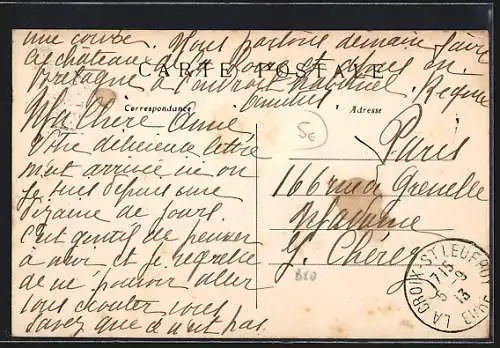 une course. Nous partons demain faire
les châteaux de la Loire et nous en
Bretagne à l'endroit habituel
CARTE POSTALE
Correspondance
Adresse
Ma Chère Amie,
Votre délicieuse lettre
m'est arrivée ici où
je suis depuis une
dizaine de jours.
c'est gentil de penser
à moi et je regrette
de ne pouvoir aller
vous écouter vous
savez que ce n'est pas
5€
Paris
166 rue de Grenelle
Madame
Y. Chérez
B20
LA CROIX-ST LEUFROY
17 15
9-9
13
EURE